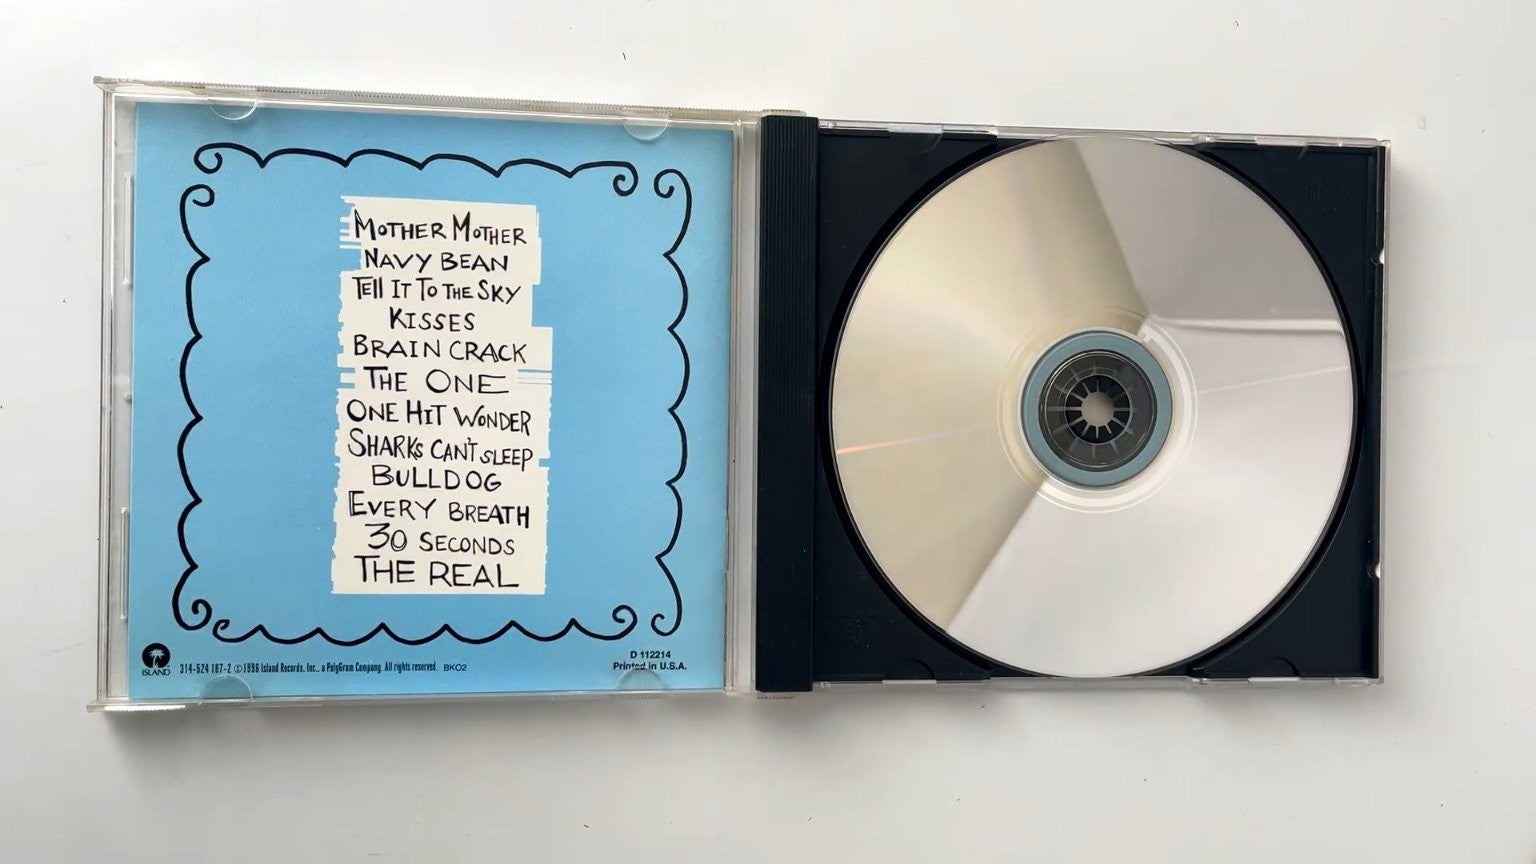 MOTHER MOTHER
NAVY BEAN
TELL IT TO THE SKY
KISSES
BRAIN CRACK
THE ONE
ONE HIT WONDER
SHARKS CAN'T SLEEP
BULLDOG
EVERY BREATH
30 SECONDS
THE REAL
ISLAND
314-524 187-2 ℗©1996 Island Records, Inc., a PolyGram Company. All rights reserved. BK02
D 112214
Printed in U.S.A.